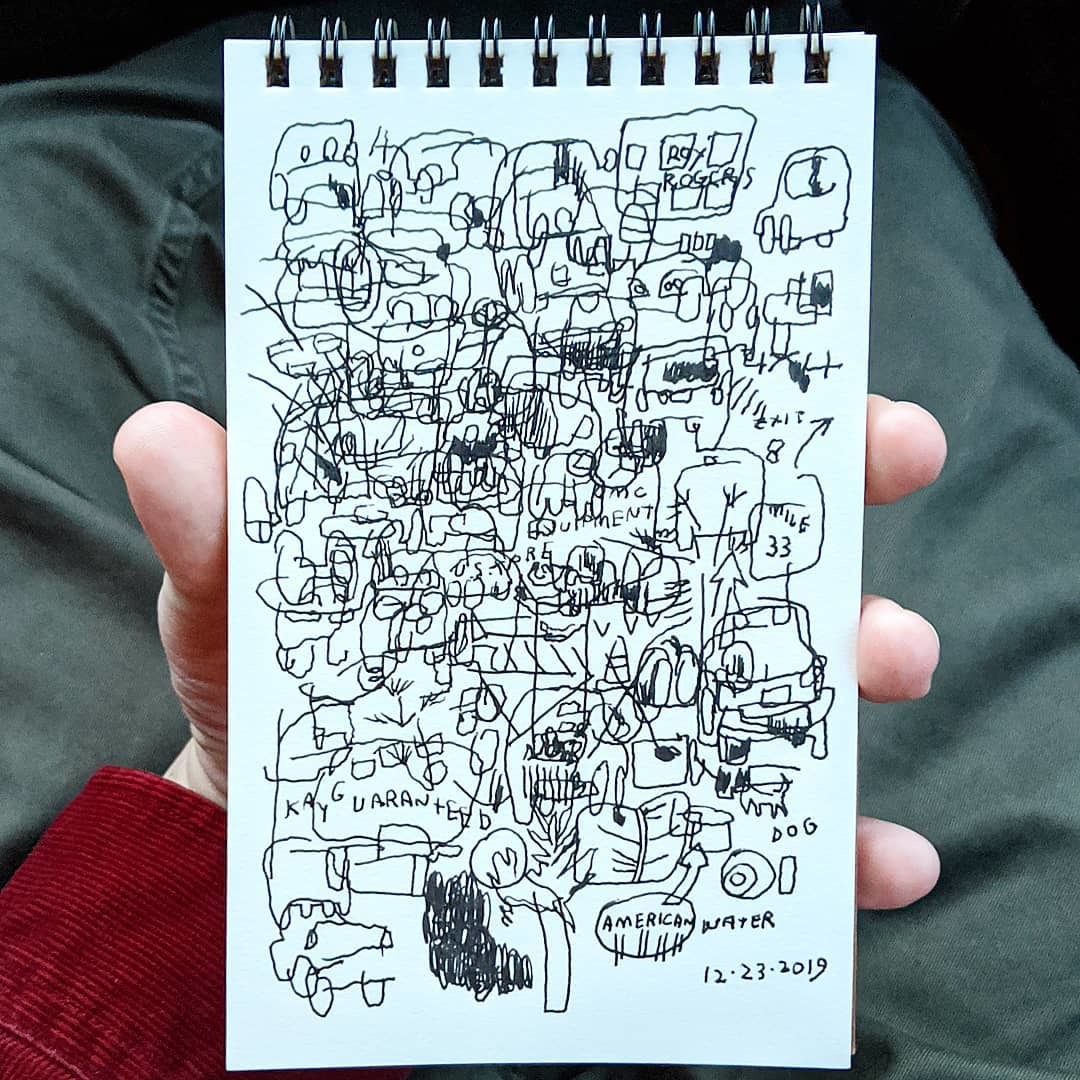 ROY
ROGERS
4x4
EXIT
8
MC
EQUIPMENT
MILE
33
KAY GUARANTEED
DOG
AMERICAN WATER
12.23.2019